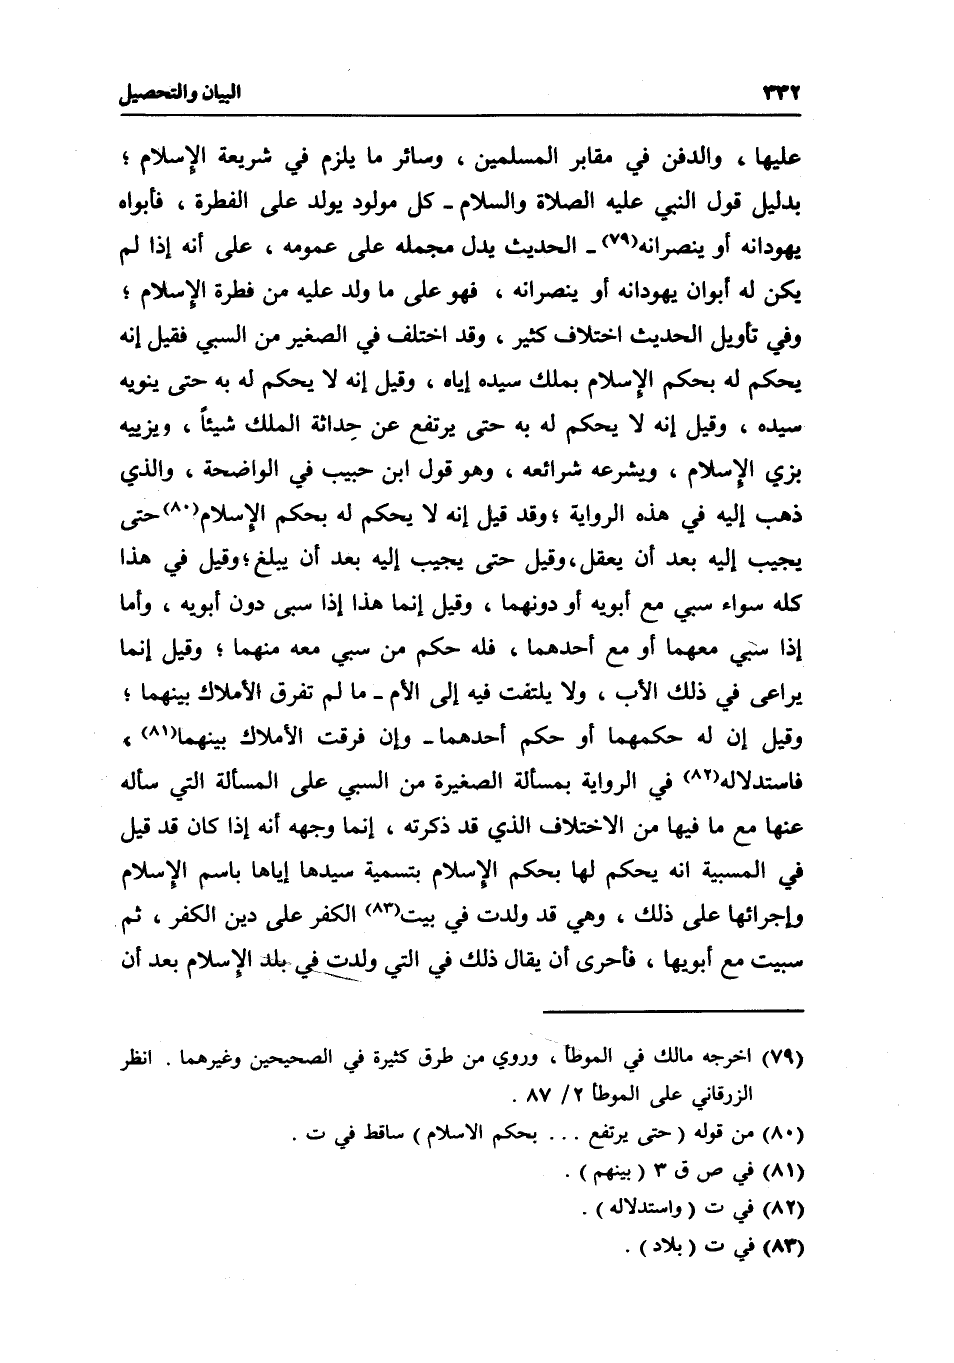 ٣٣٢ البيان والتحصيل
عليها ، والدفن في مقابر المسلمين ، وسائر ما يلزم في شريعة الإسلام ؛
بدليل قول النبي عليه الصلاة والسلام ـ كل مولود يولد على الفطرة ، فأبواه
يهودانه أو ينصرانه(٧٩) ـ الحديث يدل مجمله على عمومه ، على أنه إذا لم
يكن له أبوان يهودانه أو ينصرانه ، فهو على ما ولد عليه من فطرة الإسلام ؛
وفي تأويل الحديث اختلاف كثير ، وقد اختلف في الصغير من السبي فقيل إنه
يحكم له بحكم الإسلام بملك سيده إياه ، وقيل إنه لا يحكم له به حتى ينويه
سيده ، وقيل إنه لا يحكم له به حتى يرتفع عن حداثة الملك شيئاً ، ويزييه
بزي الإسلام ، ويشرعه شرائعه ، وهو قول ابن حبيب في الواضحة ، والذي
ذهب إليه في هذه الرواية ؛ وقد قيل إنه لا يحكم له بحكم الإسلام(٨٠) حتى
يجيب إليه بعد أن يعقل، وقيل حتى يجيب إليه بعد أن يبلغ؛ وقيل في هذا
كله سواء سبي مع أبويه أو دونهما ، وقيل إنما هذا إذا سبى دون أبويه ، وأما
إذا سبي معهما أو مع أحدهما ، فله حكم من سبي معه منهما ؛ وقيل إنما
يراعى في ذلك الأب ، ولا يلتفت فيه إلى الأم ـ ما لم تفرق الأملاك بينهما ؛
وقيل إن له حكمهما أو حكم أحدهما ـ وإن فرقت الأملاك بينهما(٨١) ،
فاستدلاله(٨٢) في الرواية بمسألة الصغيرة من السبي على المسألة التي سأله
عنها مع ما فيها من الاختلاف الذي قد ذكرته ، إنما وجهه أنه إذا كان قد قيل
في المسبية انه يحكم لها بحكم الإسلام بتسمية سيدها إياها باسم الإسلام
وإجرائها على ذلك ، وهي قد ولدت في بيت(٨٣) الكفر على دين الكفر ، ثم
سبيت مع أبويها ، فأحرى أن يقال ذلك في التي ولدت في بلد الإسلام بعد أن
(٧٩) اخرجه مالك في الموطأ ، وروي من طرق كثيرة في الصحيحين وغيرهما . انظر
الزرقاني على الموطأ ٢/ ٨٧ .
(٨٠) من قوله ( حتى يرتفع ... بحكم الاسلام ) ساقط في ت .
(٨١) في ص ق ٣ ( بينهم ) .
(٨٢) في ت ( واستدلاله ) .
(٨٣) في ت ( بلاد ) .